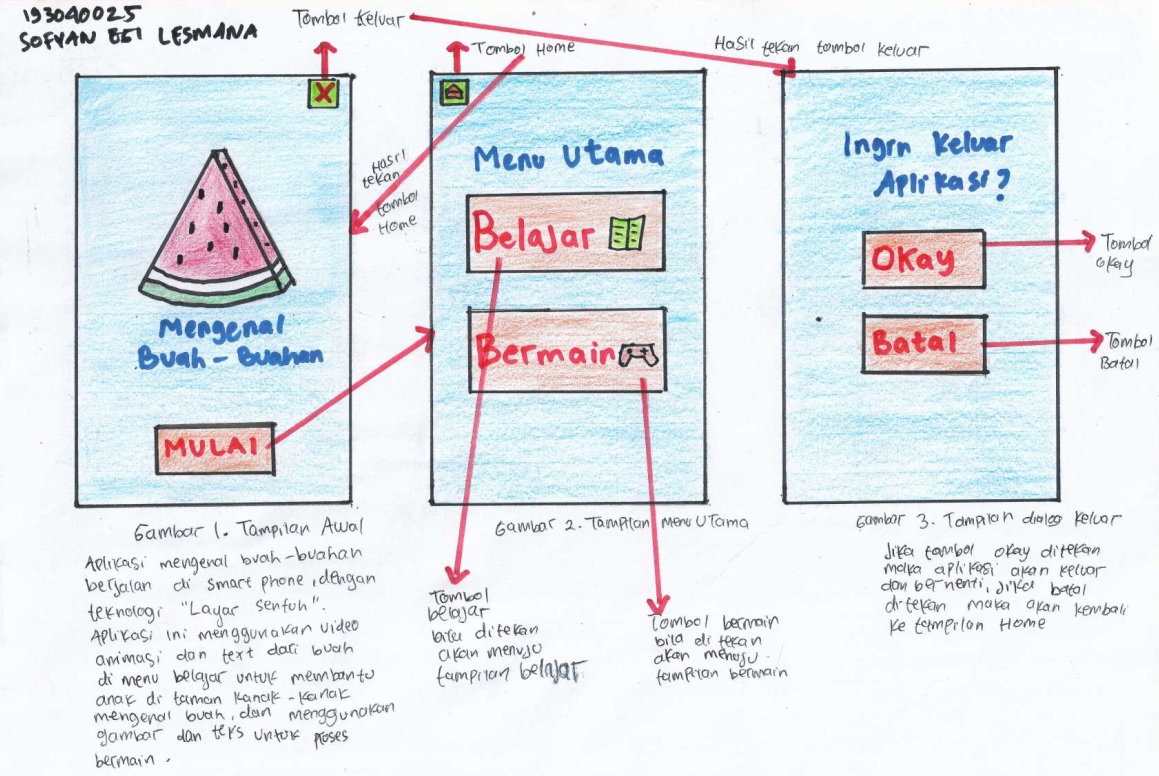 193040025
SOFYAN EGI LESMANA
Tombol Keluar
Tombol Home
Hasil tekan tombol keluar
Hasil
tekan
tombol
Home
Mengenal
Buah-Buahan
MULAI
Menu Utama
Belajar
Bermain
Ingin Keluar
Aplikasi?
Okay
Batal
Tombol
okay
Tombol
Batal
Gambar 1. Tampilan Awal
Aplikasi mengenal buah-buahan
berjalan di smart phone, dengan
teknologi "Layar Sentuh".
Aplikasi ini menggunakan video
animasi dan text dari buah
di menu belajar untuk membantu
anak di taman kanak-kanak
mengenal buah, dan menggunakan
gambar dan teks untuk proses
bermain.
Gambar 2. Tampilan menu Utama
Tombol
belajar
bila ditekan
akan menuju
tampilan belajar
Tombol bermain
bila di tekan
akan menuju
tampilan bermain
Gambar 3. Tampilan dialog keluar
Jika tombol okay ditekan
maka aplikasi akan keluar
dan berhenti, jika batal
ditekan maka akan kembali
ke tampilan Home